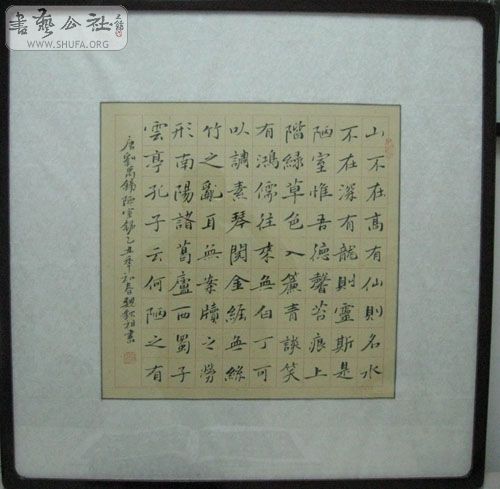 書藝公社
WWW.SHUFA.ORG
山不在高有仙則名水
不在深有龍則靈斯是
陋室惟吾德馨苔痕上
階緑草色入簾青談笑
有鴻儒往來無白丁可
以調素琴閱金經無絲
竹之亂耳無案牘之勞
形南陽諸葛廬西蜀子
雲亭孔子云何陋之有
唐劉禹錫陋室銘乙丑年初春書